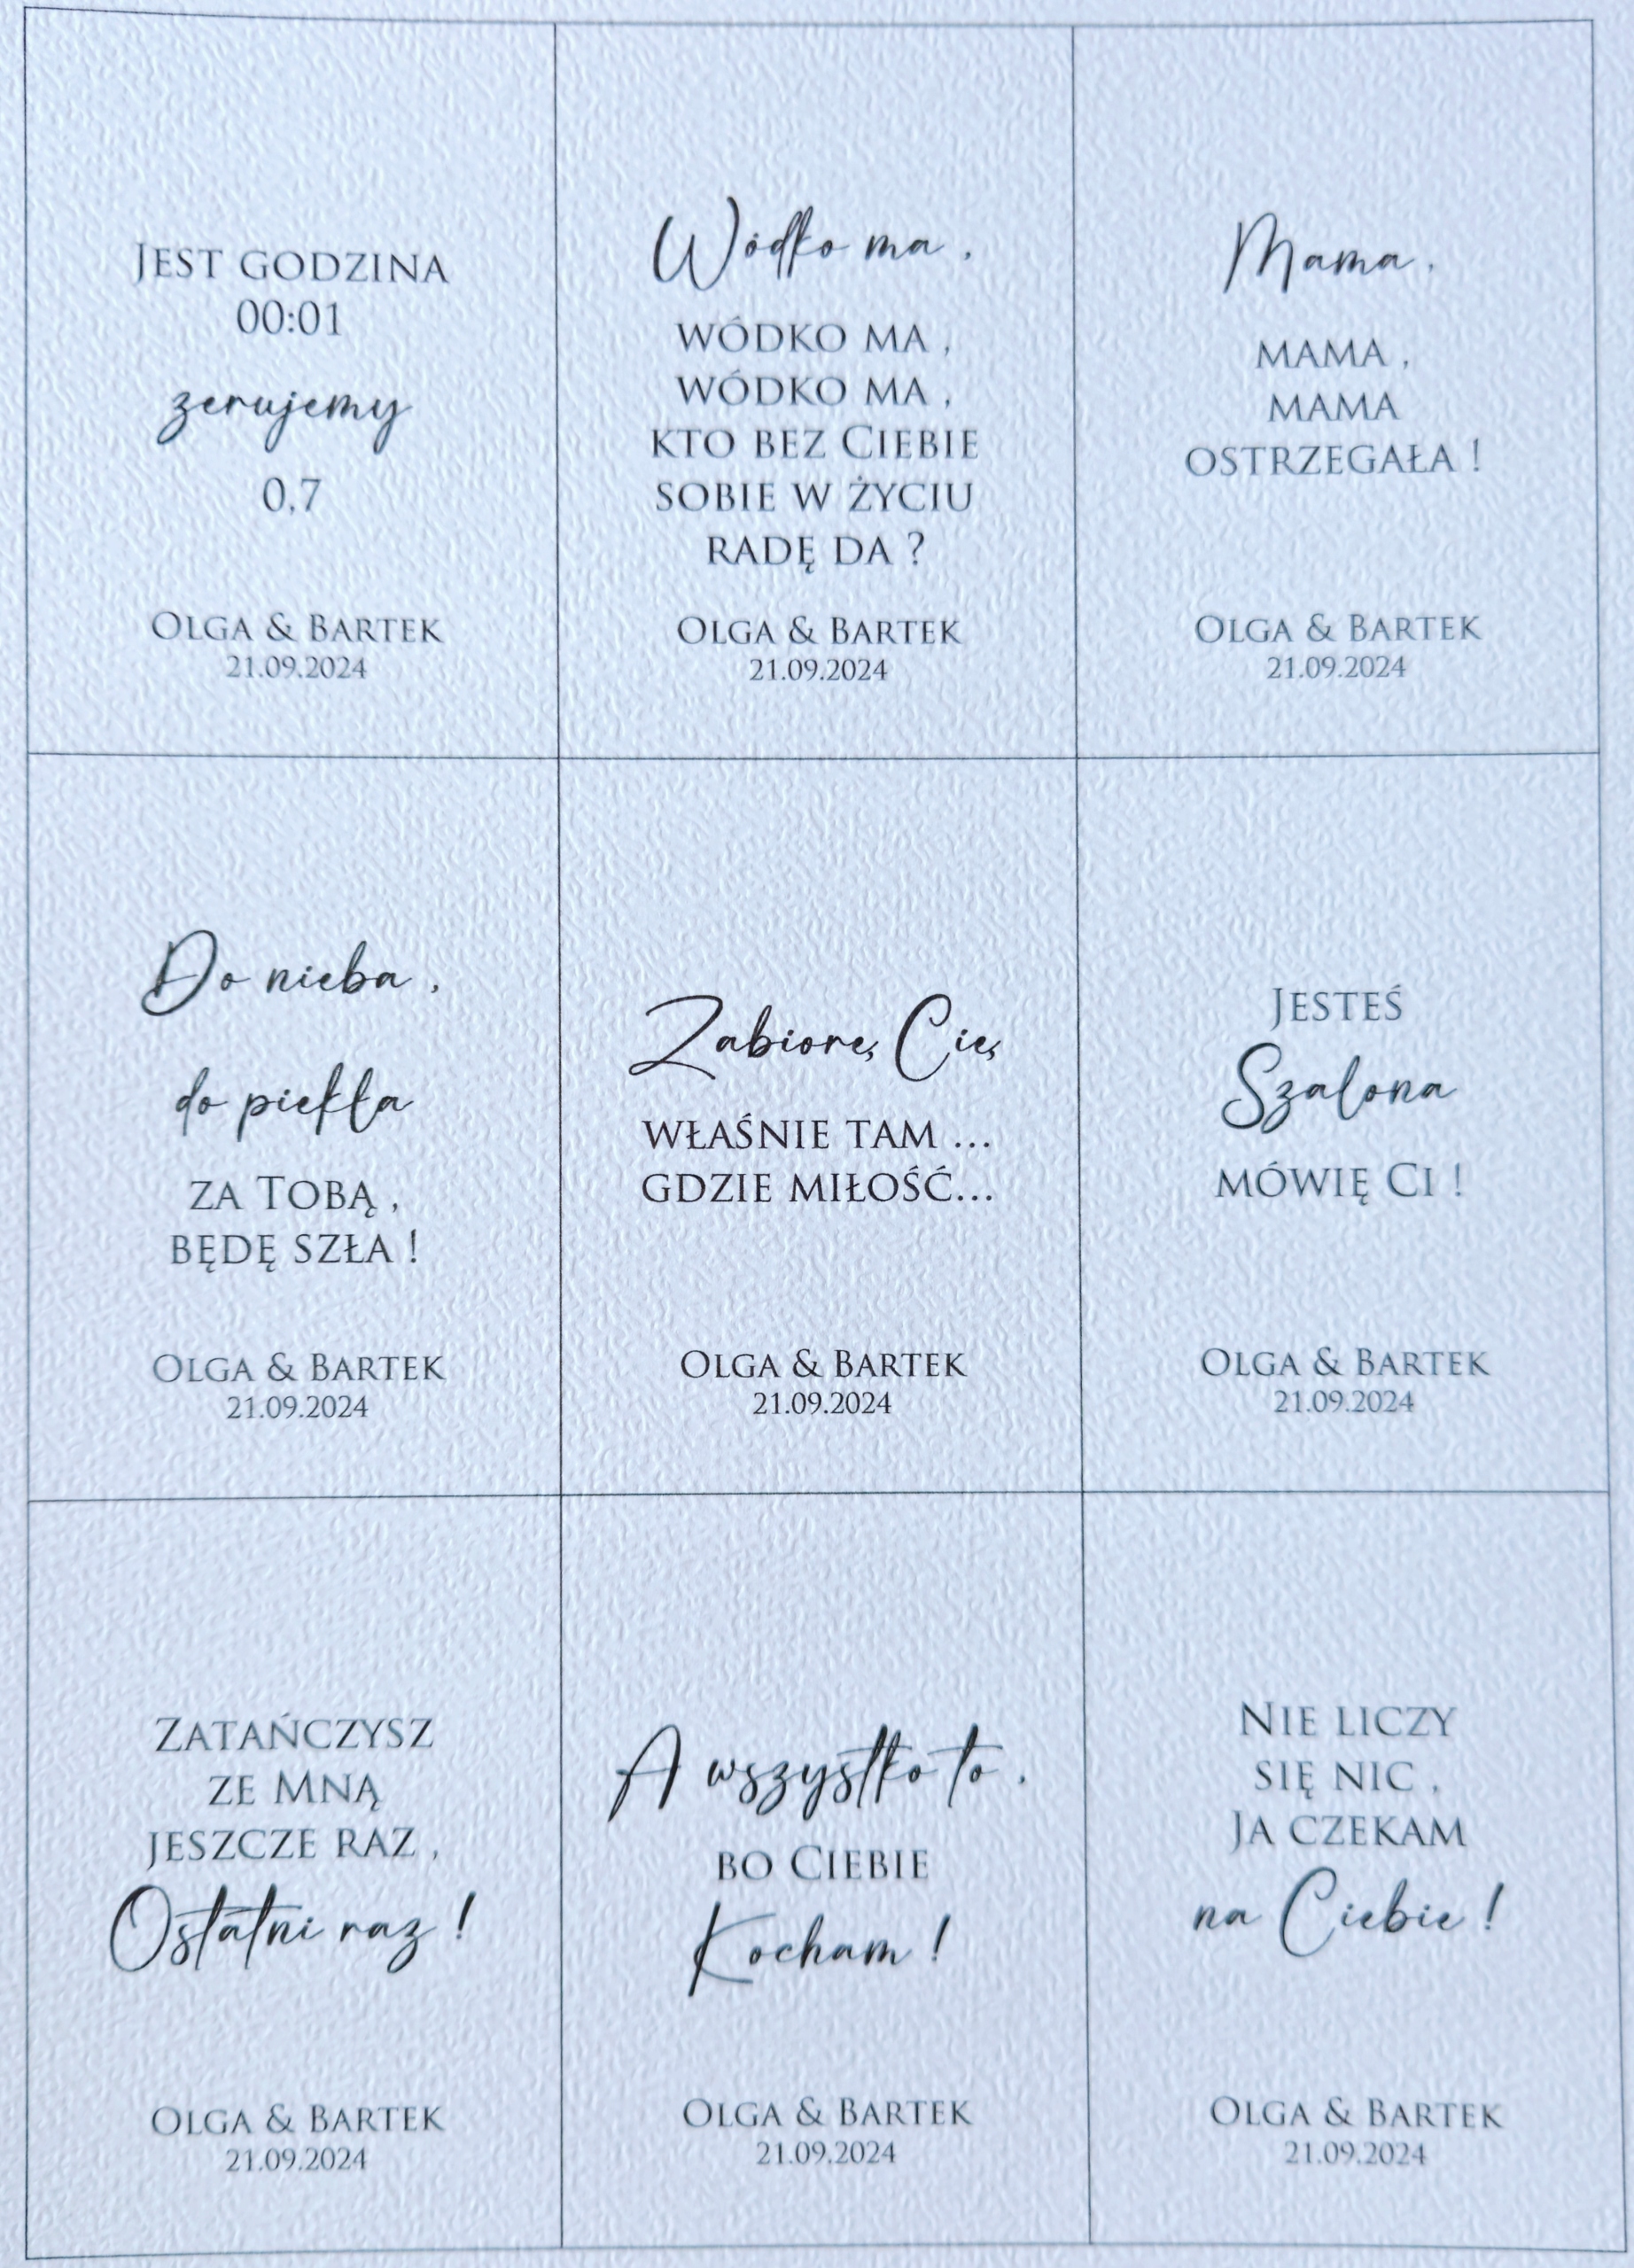 Jest godzina
00:01
zerujemy
0,7
Olga & Bartek
21.09.2024
Wódko ma ,
wódko ma ,
wódko ma ,
kto bez Ciebie
sobie w życiu
radę da ?
Olga & Bartek
21.09.2024
Mama ,
mama ,
mama
ostrzegała !
Olga & Bartek
21.09.2024
Do nieba ,
do piekła
za Tobą ,
będę szła !
Olga & Bartek
21.09.2024
Zabiorę Cię
właśnie tam ...
gdzie miłość...
Olga & Bartek
21.09.2024
Jesteś
Szalona
mówię Ci !
Olga & Bartek
21.09.2024
Zatańczysz
ze Mną
jeszcze raz ,
Ostatni raz !
Olga & Bartek
21.09.2024
A wszystko to ,
bo Ciebie
Kocham !
Olga & Bartek
21.09.2024
Nie liczy
się nic ,
Ja czekam
na Ciebie !
Olga & Bartek
21.09.2024